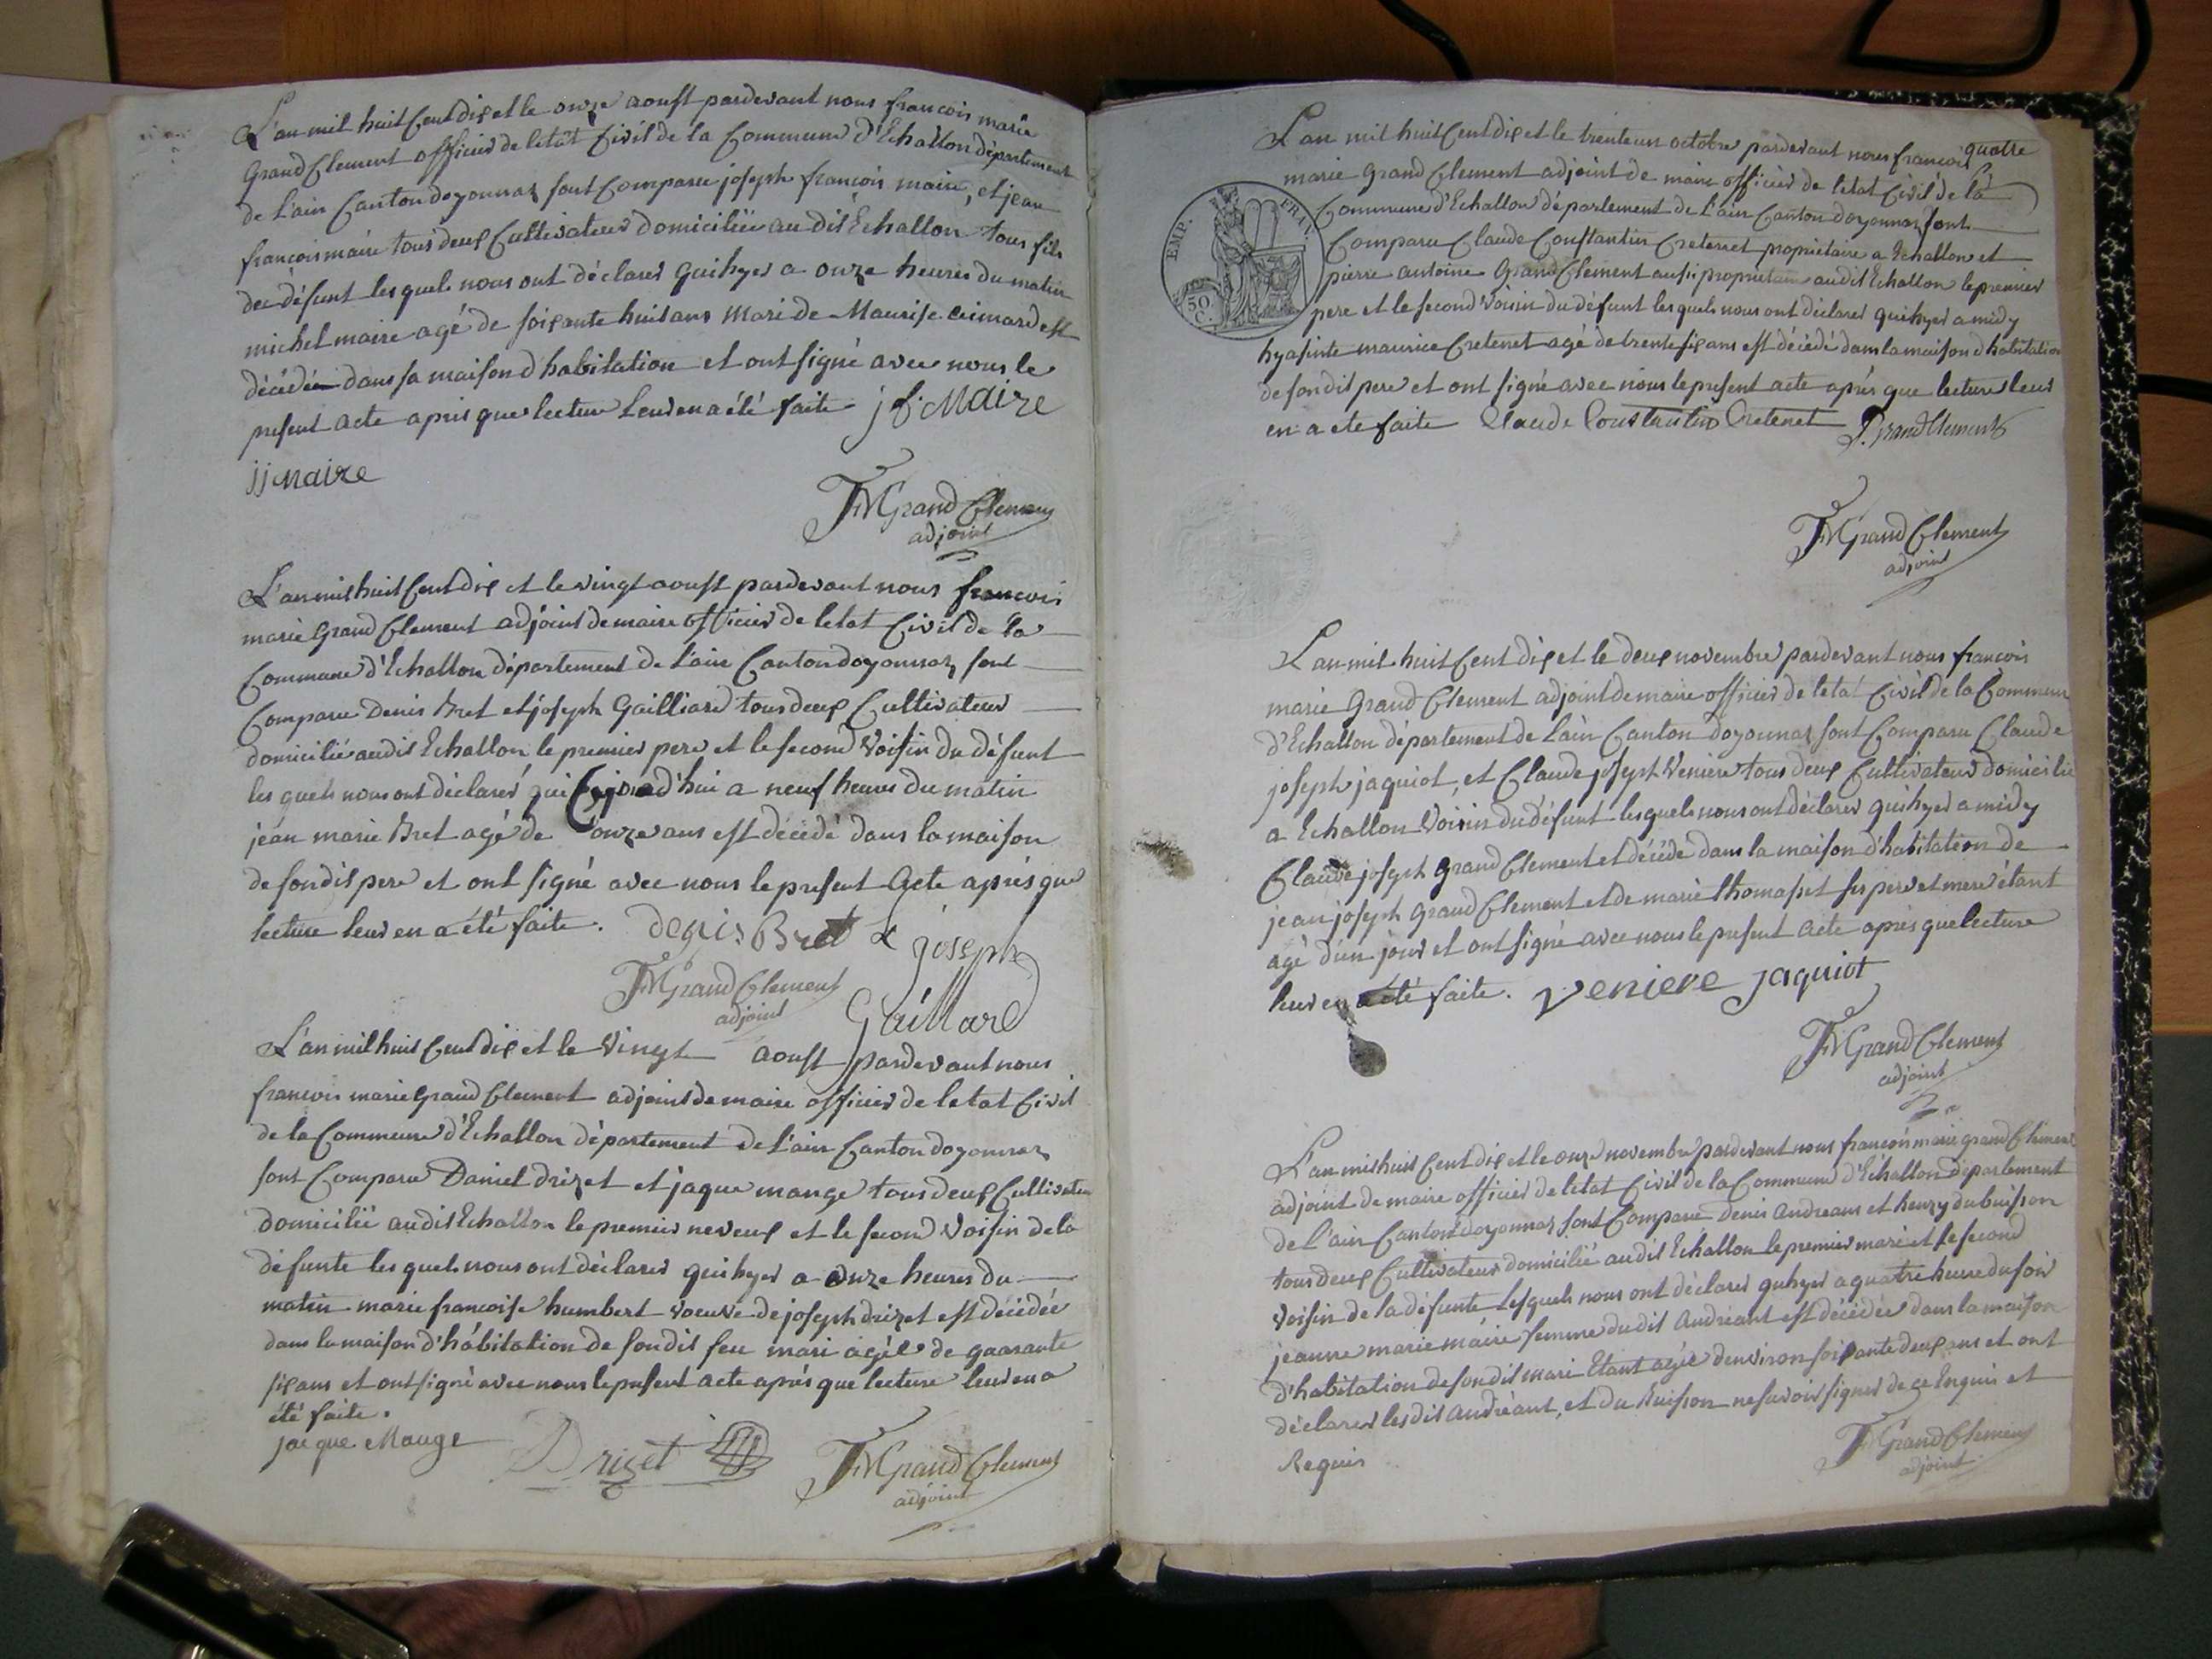 L'an mil huit Cent dix et le onze aoust pardevant nous francois marie
Grand Clement officier de letat Civil de la Commune d'Echallon département
de L'ain Canton doyonnaz sont Comparu joseph francois maire, et jean
francois maire tous deux Cultivateur domicilié au dit Echallon tous fils
du défunt les quels nous ont déclarer quihyer a onze heures du matin
michel maire agé de soixante huit ans Mari de Maurise est
décédé dans sa maison d'habitation et ont signé avec nous le
present acte apris que lecture Leur en a été faite j f Maire
jj Maire
FM Grand Clement
adjoint
L'an mil huit Cent dix et le vingt aoust pardevant nous francois
marie Grand Clement adjoint de maire officier de letat Civil de la
Commune d'Echallon département de L'ain Canton doyonnaz sont
Comparu Denis Bret et joseph Gailliard tous deux Cultivateur
domicilié audit Echallon le premier pere et le second Voisin du défunt
les quels nous ont déclarer qui Cejourd'hui a neuf heures du matin
jean marie Bret agé de onze ans est décédé dans la maison
de sondit pere et ont signé avec nous le present Acte après que
lecture leur en a été faite. denis Bret joseph
Gaillard
FM Grand Clement
adjoint
L'an mil huit Cent dix et le Vingt aoust pardevant nous
francois marie Grand Clement adjoint de maire officier de letat Civil
de la Commune d'Echallon département de L'ain Canton doyonnaz
sont Comparu Daniel drizet et jaque mange tous deux Cultivateur
domicilié audit Echallon le premier neveux et le second Voisin de la
défunte les quels nous ont déclarer quihyer a onze heures du
matin marie francoise humbert voeuve de joseph drizet est décédée
dans la maison d'hábitation de sondit feu mari agée de quarante
six ans et ont signé avec nous le present acte après que lecture leur en a
été faite.
jacque Mange Drizet FM Grand Clement
adjoint
quatre
L'an mil huit Cent dix et le trente un octobre pardevant nous francois
marie Grand Clement adjoint de maire officier de letat Civil de la
Commune d'Echallon département de L'ain Canton doyonnaz sont
Comparu Claude Constantin Cretenet propriétaire a Echallon et
pierre antoine Grand Clement aussi propriétaire audit Echallon le premier
pere et le second Voisin du défunt les quels nous ont déclarer quihyer a midy
hyasinte maurice Cretenet agé de trente six ans est décédé dans la maison d'habitation
de sondit pere et ont signé avec nous le present acte après que lecture leur
en a ete faite Claude Constantin Cretenet P. Grand Clement
EMP. FRAN.
50 C.
FM Grand Clement
adjoint
L'an mil huit Cent dix et le deux novembre pardevant nous francois
marie Grand Clement adjoint de maire officier de letat Civil de la Commune
d'Echallon département de L'ain Canton doyonnaz sont Comparu Claude
joseph jaquiot, et Claude joseph Veniere tous deux Cultivateur domicilié
a Echallon Voisin du défunt lesquels nous ont déclarer quihyer a midy
Claude joseph Grand Clement et décéde dans la maison d'habitation de
jean joseph Grand Clement et de marie thomasset ses pere et mere étant
agé d'un jour et ont signé avec nous le present Acte après que lecture
leur en a été faite. Veniere jaquiot
FM Grand Clement
adjoint
L'an mil huit Cent dix et le onze novembre pardevant nous francois marie grand Clement
adjoint de maire officier de letat Civil de la Commune d'Echallon département
de L'ain Canton doyonnaz sont Comparu Denis Andreans et henry dubuisson
tous deux Cultivateur domicilié audit Echallon le premier mari et le second
Voisin de la défunte Lesquels nous ont déclarer quhyer a quatre heure du soir
jeanne marie máire femme dudit Andréant est décédée dans la maison
d'habitation de sondit mari Etant agée d'environ soixante deux ans et ont
déclarer lesdit Andréant, et du Buisson ne savoir signer de ce Enquis et
Requis
FM Grand Clement
adjoint